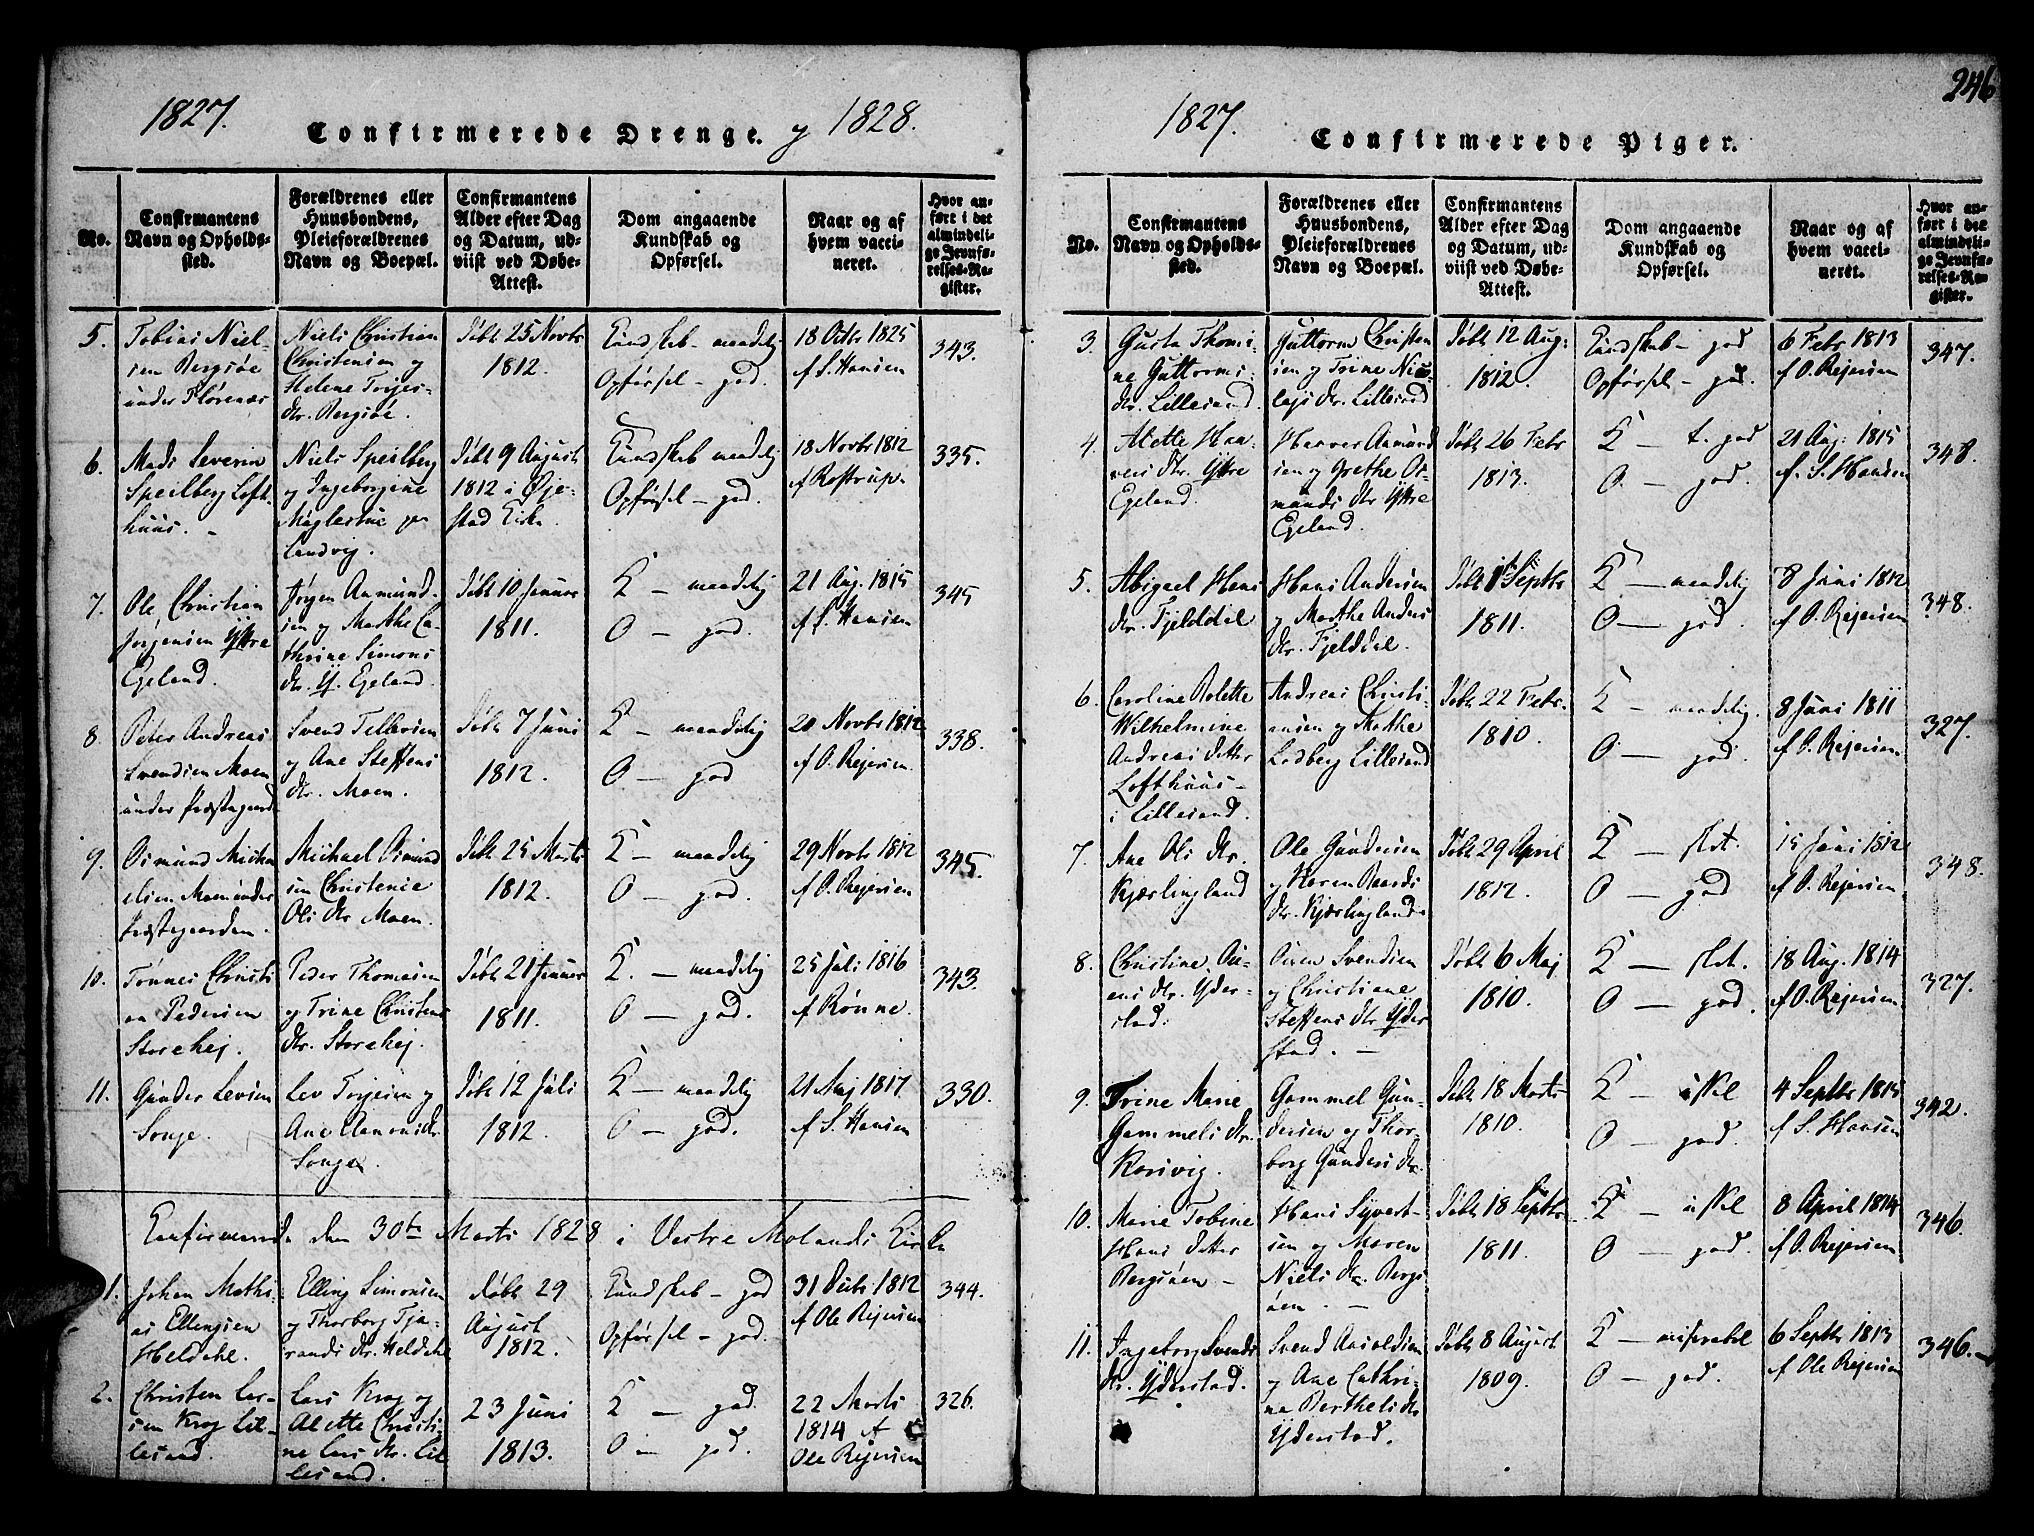 1827.
Confirmerede Drenge. y 1828.
No.
Confirmantens
Navn og Opholds-
sted.
Forældrenes eller
Huusbondens,
Pleieforældrenes
Navn og Boepæl.
Confirmantens
Alder efter Dag
og Datum, ud-
viist ved Døbe-
Attest.
Dom angaaende
Kundskab og
Opførsel.
Naar og af
hvem vacci-
neret.
Hvor an-
ført i det
almindeli-
ge Jevnfø-
relses-Re-
gister.
5.
Tobias Niel-
sen Bergsøe
under
Niels Christian
Christensen og
Helene Torjes-
dtr. Bergsøe.
Døbt 25 Novbr
1812.
Kundskab - maadelig
Opførsel - god.
18 Octbr 1825
af S. Hansen
343.
6.
Mads Severin
Speilberg Loft-
huus. -
Niels Speilberg
og Ingeborgine
Møglestue paa
Landvig.
Døbt 9 August
1812 i Øje-
stad Kirke
Kundskab maadelig
Opførsel - god.
18 Novbr 1812
af Rostrup.
335.
7.
Ole Christian
Jørgensen Yttre
Egeland.
Jørgen Aamund-
sen og Marthe Ca-
thrine Simons
dtr. Y. Egeland.
Døbt 10 Januar
1811.
K - maadelig
O - god.
21 Aug. 1815
af S. Hansen
345
8.
Peter Andreas
Svendsen Moen
under Præstegaard
Svend Tellefsen
og Ane Steffens
dtr. Moen.
Døbt 7 Juni
1812.
K - maadelig
O - god
20 Novbr 1812
af O. Rejersen.
338.
9.
Osmund Micha-
elsen Moen under
Præstegaarden.
Michael Osmund
sen Christence
Ols dtr Moen.
Døbt 25 Marts
1812.
K - maadelig
O - god.
29 Novbr 1812
af O. Rejersen
345.
10.
Tønnes Christi
an Pedersen
Storehej.
Peder Thomasen
og Trine Christens
dtr. Storehej.
Døbt 21 Januar
1811.
K. - maadelig
O - god.
25 Juli 1816
af Rønne.
343.
11.
Gunder Levsen
Songe.
Lev Torjesen og
Ane Aanonsdtr
Songe.
Døbt 12 Juli
1812.
K - maadelig
O - god.
21 Maj 1817
af S. Hansen
330.
Confirmerede den 30te Marts 1828 i Vestre Molands Kirke
1.
Johan Mathi-
as Ellingsen
Heldale.
Elling Simonsen
og Thorborg Tja-
rands dtr. Heldale
Døbt 29
August
1812.
Kundskab - god
Opførsel - god.
31 Decbr 1812
af Ole Rejersen
344.
2.
Christen Lar-
sen Krog Lil-
lesand.
Lars Krog og
Alette Christi-
ne Lars dtr. Lil
lesand.
23 Juni
1813.
K - god.
O - god.
22 Marts
1814 af
Ole Rejersen
326.
246
1827.
Confirmerede Piger.
No.
Confirmantens
Navn og Opholds-
sted.
Forældrenes eller
Huusbondens,
Pleieforældrenes
Navn og Boepæl.
Confirmantens
Alder efter Dag
og Datum, ud-
viist ved Døbe-
Attest.
Dom angaaende
Kundskab og
Opførsel.
Naar og af
hvem vacci-
neret.
Hvor an-
ført i det
almindeli-
ge Jevnfø-
relses-Re-
gister.
3.
Gusta Thomi-
ne Guttorms-
dtr. Lillesand.
Guttorm Christen
sen og Trine Nico-
lajs dtr. Lillesand
Døbt 12 Aug:
1812.
Kundskab - god
Opførsel - god.
6 Febr 1813
af O. Rejersen
347.
4.
Alette Haa-
vers dtr. Yttre
Egeland.
Haaver Aamund
sen og Grethe Os-
munds dtr Yttre
Egeland.
Døbt 26 Febr
1813.
K - t. god
O. - god.
21 Aug: 1815
af. S. Hansen
348.
5.
Abigael Hans
dtr. Fjelddal
Hans Andersen
og Marthe Anders
dtr. Fjelddal.
Døbt 1 Septbr
1811.
K - maadelig
O - god.
8 Juni 1812
af O. Rejersen
348.
6.
Caroline Bolette
Wilhelmine
Andreas datter
Lofthuus -
i Lillesand.
Andreas Christi-
ansen og Marthe
Lodberg Lillesand
Døbt 22 Febr.
1810.
K - maadelig.
O - god.
8 Juni 1811
af O. Rejersen
327.
7.
Ane Ols dtr.
Kjærlingland
Ole Gundersen
og Karen Baards
dtr. Kjærlingland.
Døbt 29 April
1812.
K - slet.
O - god
15 Juni 1812
af O. Rejersen
348.
8.
Christine Au-
ens dtr. Yder-
stad.
Auen Svendsen
og Christiane
Steffens dtr Yder
stad. -
Døbt 6 Maj
1810.
K - slet.
O - god.
18 Aug. 1814
af O. Rejersen
327.
9.
Trine Marie
Gammels dtr.
Korsvig.
Gammel Gun-
dersen og Thor-
borg Gunders dtr.
Døbt 18 Marts
1810.
K - uskel
O - god.
4 Septbr 1815
af S. Hansen
342.
10.
Marie Tobine
Hans datter
Bergsøen -
Hans Syvert-
sen og Maren
Niels dtr. Bergs
øen. -
Døbt 18 Septbr
1811.
K - uskel
O - god.
8 April 1814
af O. Rejersen
346.
11.
Ingeborg Svends
dtr. Yderstad.
Svend Aasoldsen
og Ane Cathri-
ne Berthels dtr
Yderstad.
Døbt 8 August
1809.
K - miserabel
O - god.
6 Septbr 1813
af Ole Rejersen
346.